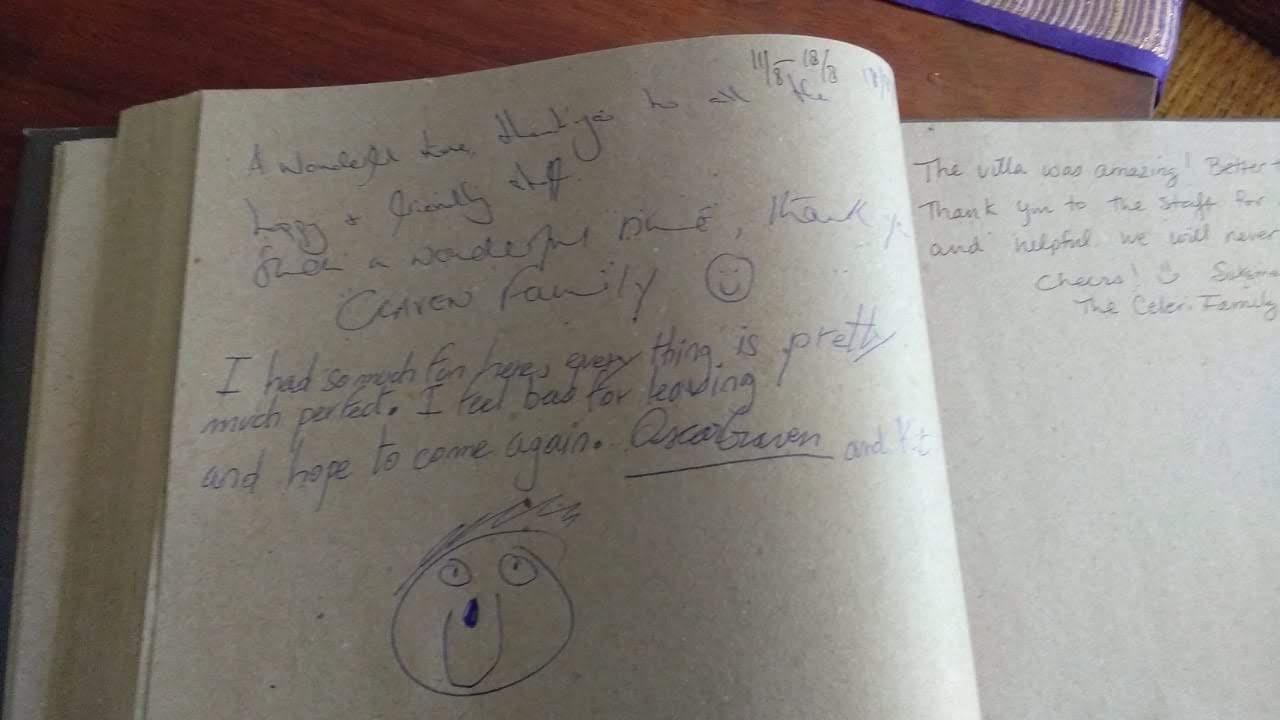 11/8 - 18/8
A wonderful time, thank you to all the
happy & friendly staff.
a wonderful time, thank
Family
I had so much fun here, every thing is pretty
much perfect. I feel bad for leaving
and hope to come again. Oscar Craven and Kit
The villa was amazing! Better
Thank you to the staff for
and helpful we will never
Cheers!
The Family